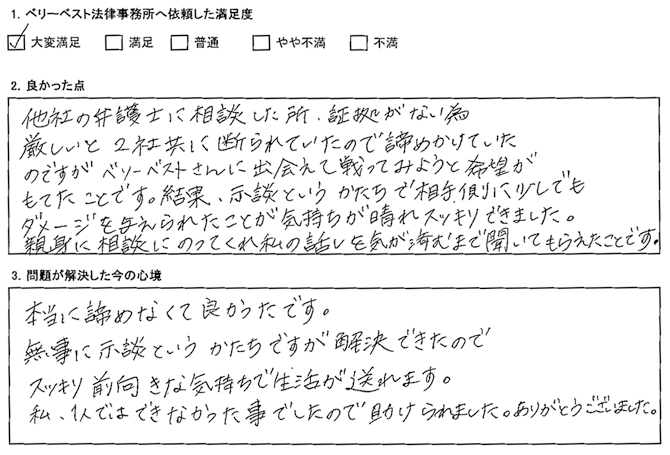 1. ベリーベスト法律事務所へ依頼した満足度
☑ 大変満足 □ 満足 □ 普通 □ やや不満 □ 不満
2. 良かった点
他社の弁護士に相談した所、証拠がない為
厳しいと2社共に断られていたので諦めかけていた
のですがベリーベストさんに出会えて戦ってみようと希望が
もてたことです。結果、示談というかたちで相手側に少しでも
ダメージを与えられたことが気持ちが晴れスッキリできました。
親身に相談にのってくれ私の話しを気が済むまで聞いてもらえたことです。
3. 問題が解決した今の心境
本当に諦めなくて良かったです。
無事に示談というかたちですが解決できたので
スッキリ前向きな気持ちで生活が送れます。
私、1人ではできなかった事でしたので助けられました。ありがとうございました。